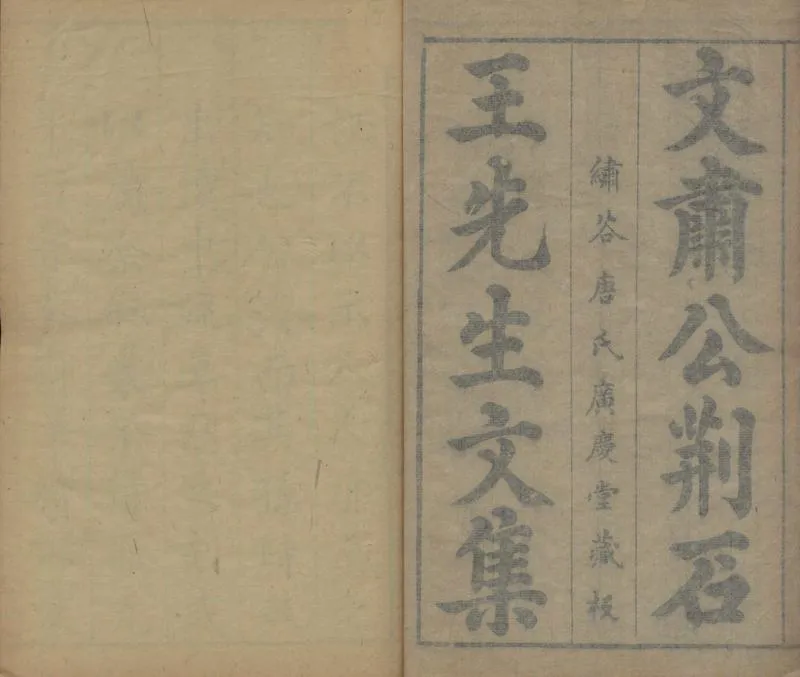 文肅公荆石
繡谷唐氏廣慶堂藏板
王先生文集